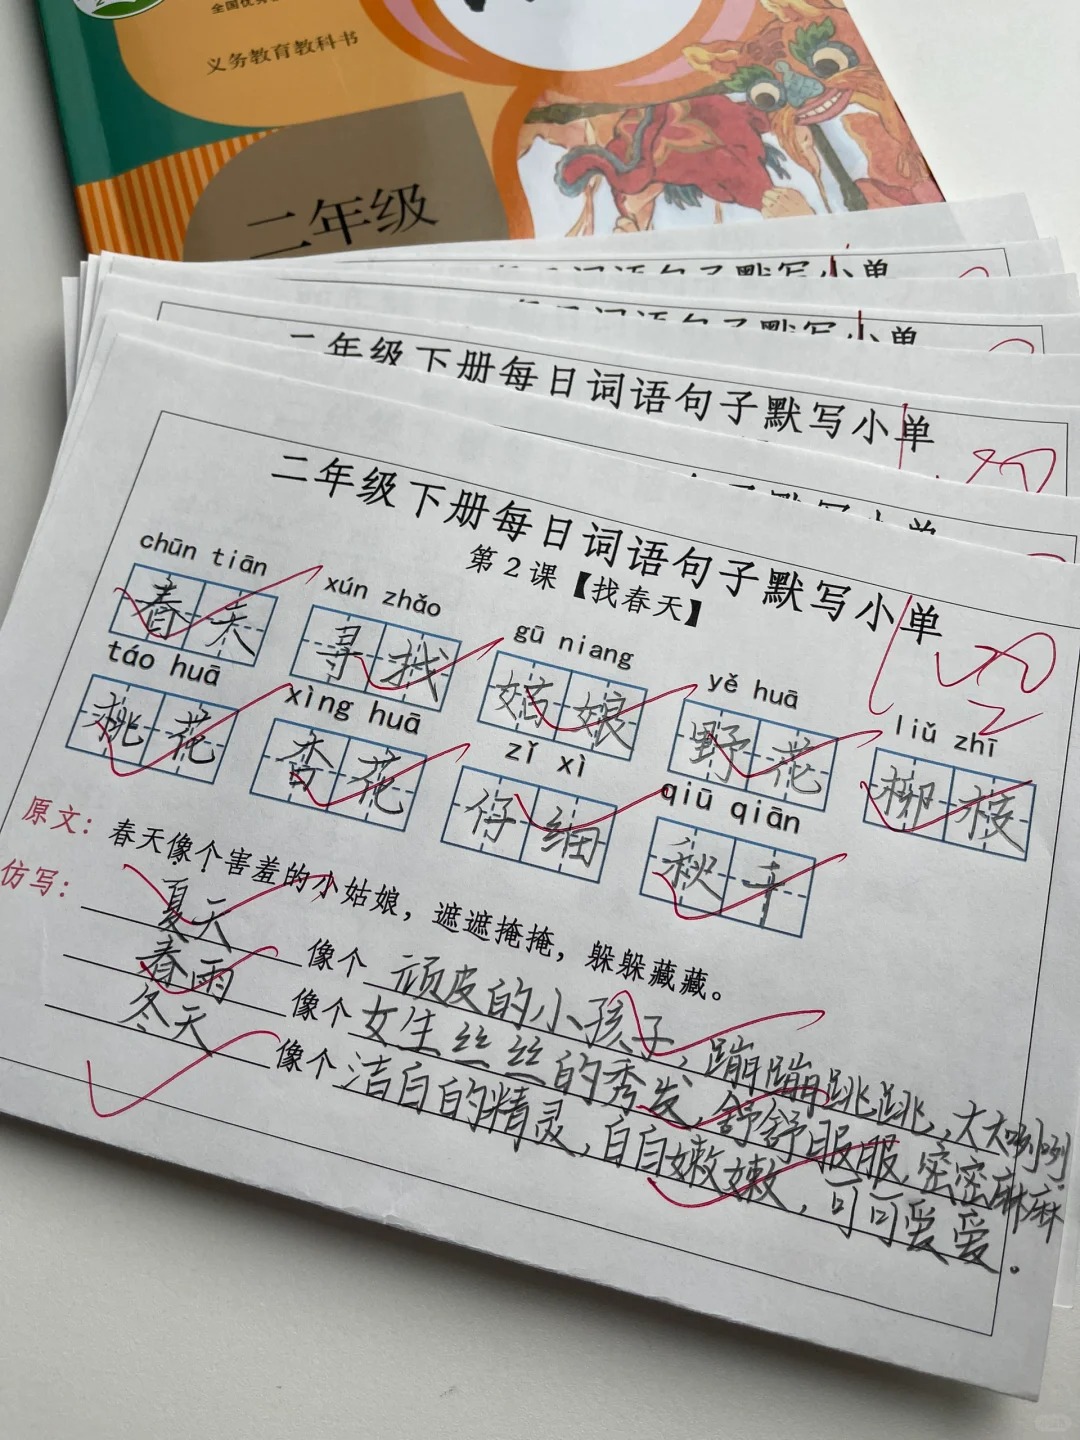 义务教育教科书
二年级
二年级下册每日词语句子默写小单
二年级下册每日词语句子默写小单
第2课【找春天】
chūn tiān xún zhǎo gū niang yě huā liǔ zhī
春天 寻找 姑娘 野花 柳枝
táo huā xìng huā zǐ xì qiū qiān
桃花 杏花 仔细 秋千
原文：春天像个害羞的小姑娘，遮遮掩掩，躲躲藏藏。
仿写：夏天像个顽皮的小孩子，蹦蹦跳跳，大大咧咧。
春雨像个女生丝丝的秀发，舒舒服服，密密麻麻
冬天像个洁白的精灵，白白嫩嫩，可可爱爱。